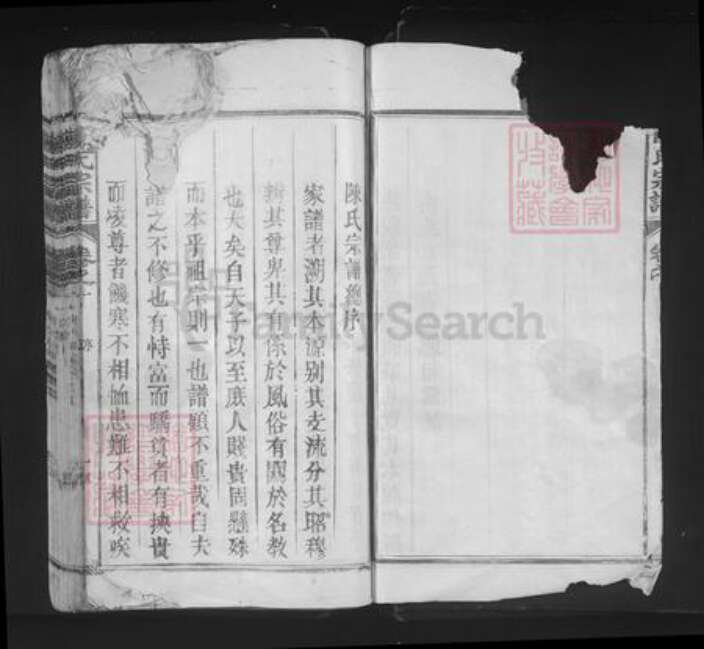 陳氏宗譜總序
家譜者溯其本源別其支流分其昭穆
辨其尊卑其有係於風俗有關於名教
也大矣自天子以至庶人賤貴固懸殊
而本乎祖宗則一也譜顧不重哉自夫
譜之不修也有恃富而驕貧者有挾貴
而凌尊者饑寒不相恤患難不相救唉
氏宗譜
卷之
序
氏宗譜
FamilySearch